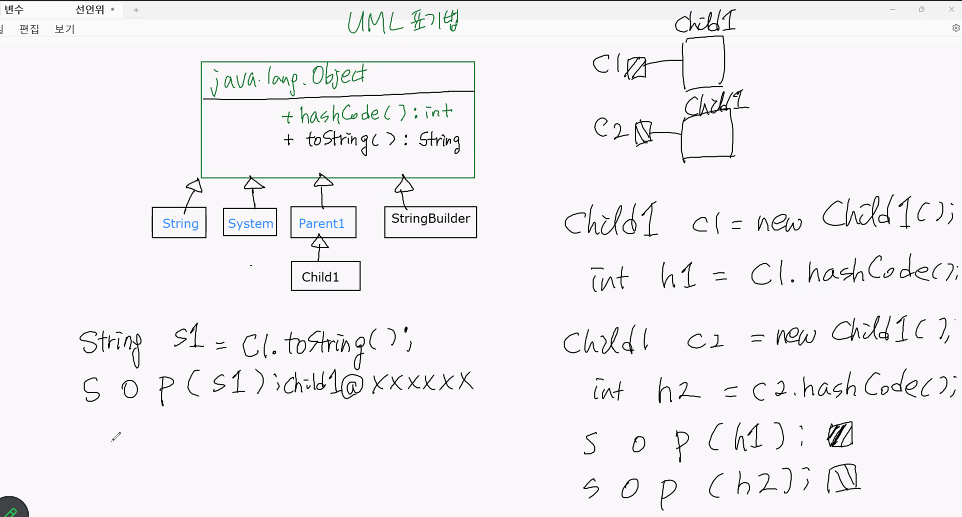 변수
선언위
편집
보기
UML 표기법
java.lang.Object
+ hashCode( ) : int
+ toString( ) : String
String
System
Parent1
StringBuilder
Child1
String s1 = C1.toString( );
S O P ( s1 ) ; child1@XXXXXX
Child1
C1
Child1
C2
Child1 c1 = new Child1( );
int h1 = C1.hashCode( );
Child1 c2 = new Child1( );
int h2 = c2.hashCode( );
S O P ( h1 ) ;
S O P ( h2 ) ;